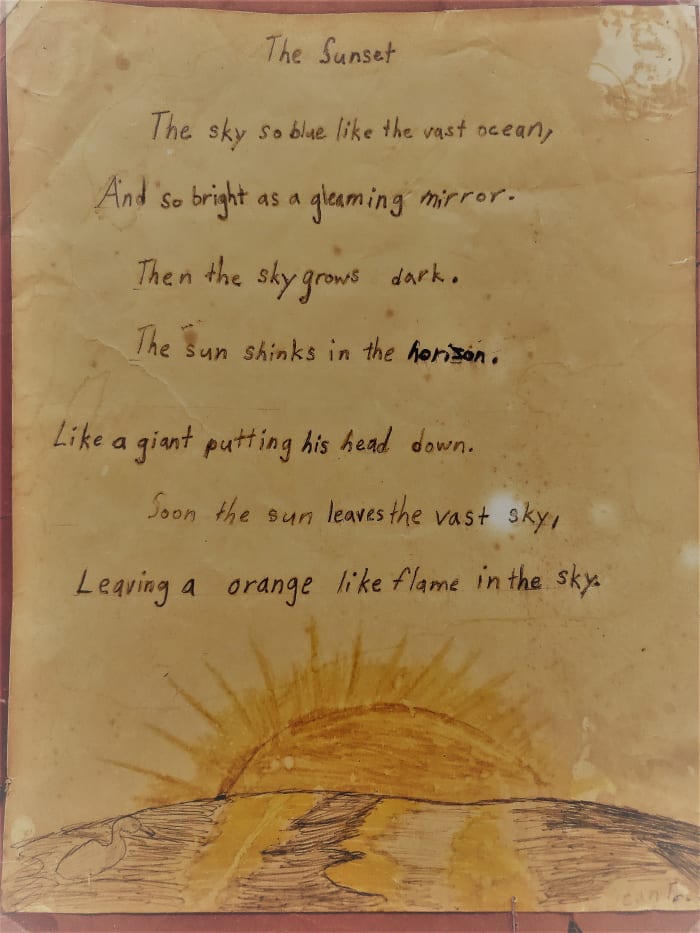 The Sunset
The sky so blue like the vast ocean,
And so bright as a gleaming mirror.
Then the sky grows dark.
The sun shinks in the horizon.
Like a giant putting his head down.
Soon the sun leaves the vast sky,
Leaving a orange like flame in the sky.